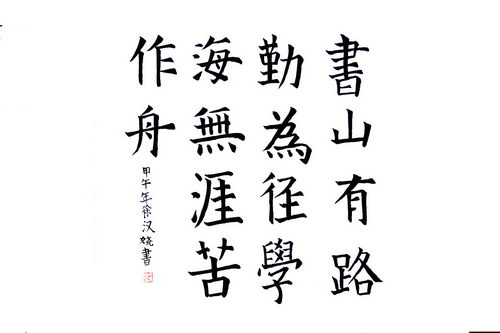 書山有路
勤為径學
海無涯苦
作舟
甲午年徐汉娆書